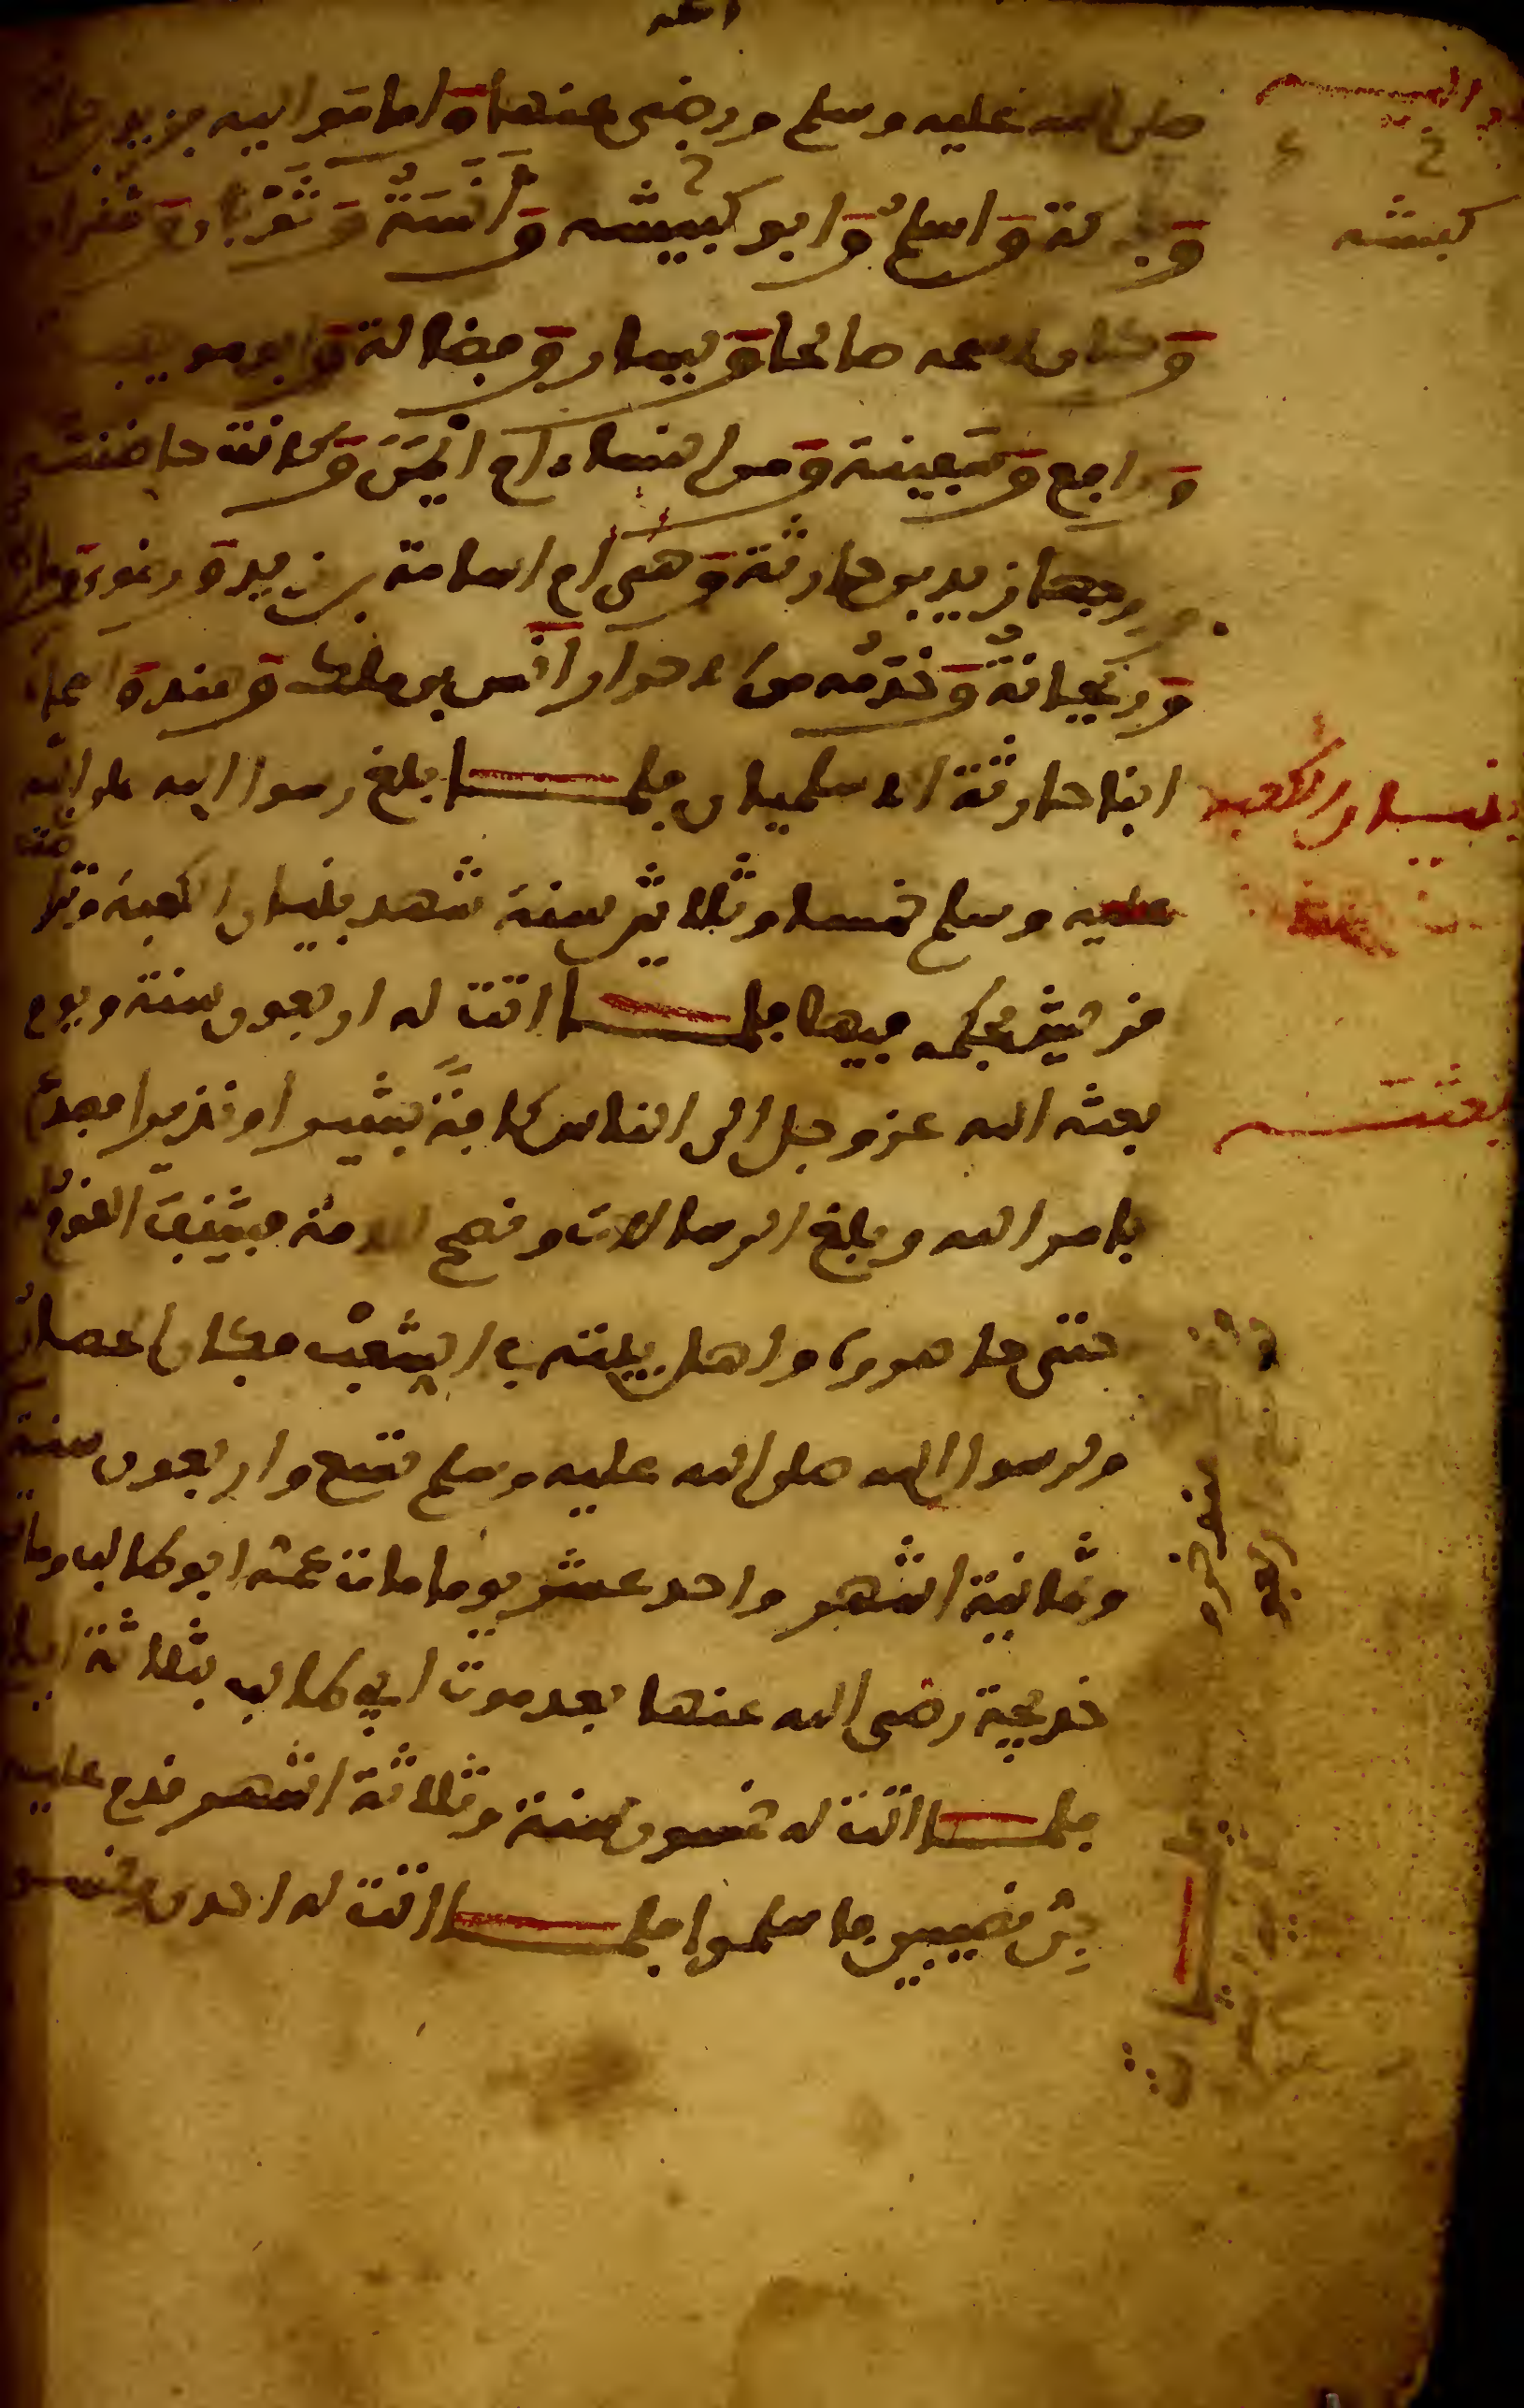 صلى الله عليه وسلم ورضى عنها واما مواليه فزيد بن
وبركة واسلم وابو كبيشه وانسة وثوبان وشقران
كبشه
وكان اسمه صالحا ويسار وفضالة وابو مويهبه
ورافع وسفينة ومن النساء ام ايمن وكانت حاضنته
زوجها زيد بن حارثة وهى ام اسامة بن زيد ورضوى
وريحانة وخدمه من الاحرار انس بن مالك وهند
ابنا حارثة الاسلميان فلما بلغ رسول الله صلى الله
بنيان الكعبه
عليه وسلم خمسا وثلاثين سنة شهد بنيان الكعبة وتراضت
قريش بحكمه فيها فلما اتت له اربعون سنة ويوم
بعثه الله عز وجل الى الناس كافة بشيرا ونذيرا فصدع
بعثته
بامر الله وبلغ الرسالات ونصح الامة فشنف القوم له
حتى حاصروه واهل بيته في الشعب فكان
ولرسول الله صلى الله عليه وسلم تسع واربعون سنة
وثمانية اشهر واحد عشر يوما مات عمه ابو طالب وماتت
خديجة رضى الله عنها بعد موت ابي طالب بثلاثة ايام
فلما اتت له خمسون سنة وثلاثة اشهر قدم عليه
جن نصيبين فاسلموا فلما اتت له احدى وخمسون